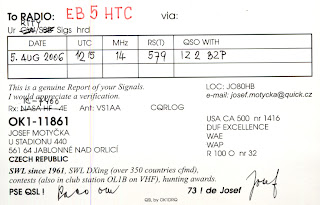 To RADIO: EB5HTC via:
RTTY
Ur CW/SSB Sigs hrd
DATE UTC MHz RS(T) QSO WITH
5. AUG 2006 1215 14 579 IZ2BZP
This is a genuine Report of your Signals.
I would appreciate a verification.
LOC: JO80HB
e-mail: josef.motycka@quick.cz
IC-7400
Rx: NASA HF-4E Ant: VS1AA CQRLOG
OK1-11861
JOSEF MOTYČKA
U STADIONU 440
561 64 JABLONNÉ NAD ORLICÍ
CZECH REPUBLIC
USA CA 500 nr 1416
DUF EXCELLENCE
WAE
WAP
R 100 O nr 32
SWL since 1961, SWL DXing (over 350 countries cfmd),
contests (also in club station OL1B on VHF), hunting awards.
PSE QSL! 73! de Josef
Josef
QSL by OK1DRQ